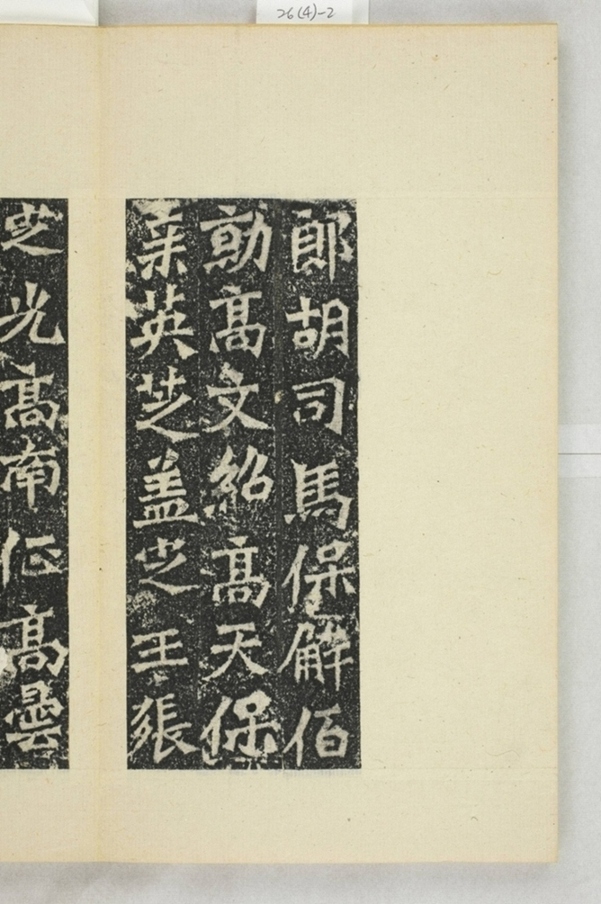 26(4)-2
郎胡司馬保解佰
勍高文紹高天保
英芝盖定王張
定光高南征高曇